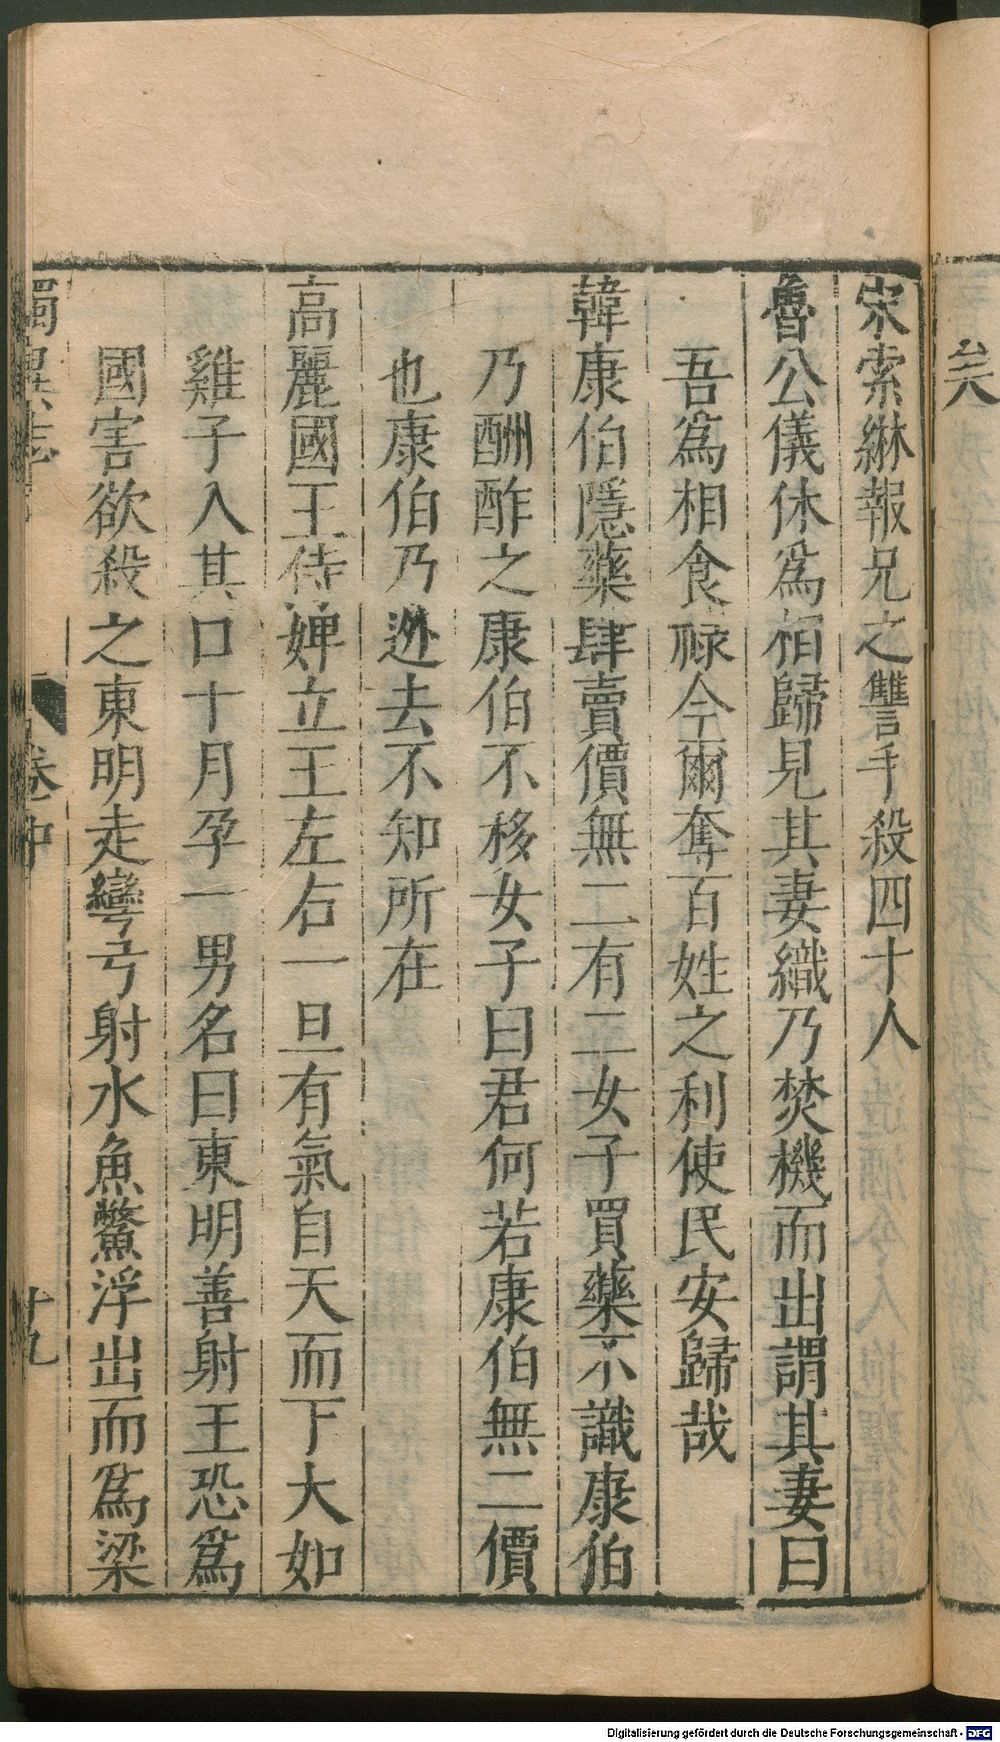 矣
宋索綝報兄之讐手殺四十人
魯公儀休爲相歸見其妻織乃焚機而出謂其妻曰
吾爲相食祿今爾奪百姓之利使民安歸哉
韓康伯隱藥肆賣價無二有二女子買藥不識康伯
乃酬酢之康伯不移女子曰君何若康伯無二價
也康伯乃迯去不知所在
高麗國王侍婢立王左右一旦有氣自天而下大如
雞子入其口十月孕一男名曰東明善射王恐爲
國害欲殺之東明走彎弓射水魚鱉浮出而爲梁
獨異志 卷中 十九
Digitalisierung gefördert durch die Deutsche Forschungsgemeinschaft - DFG